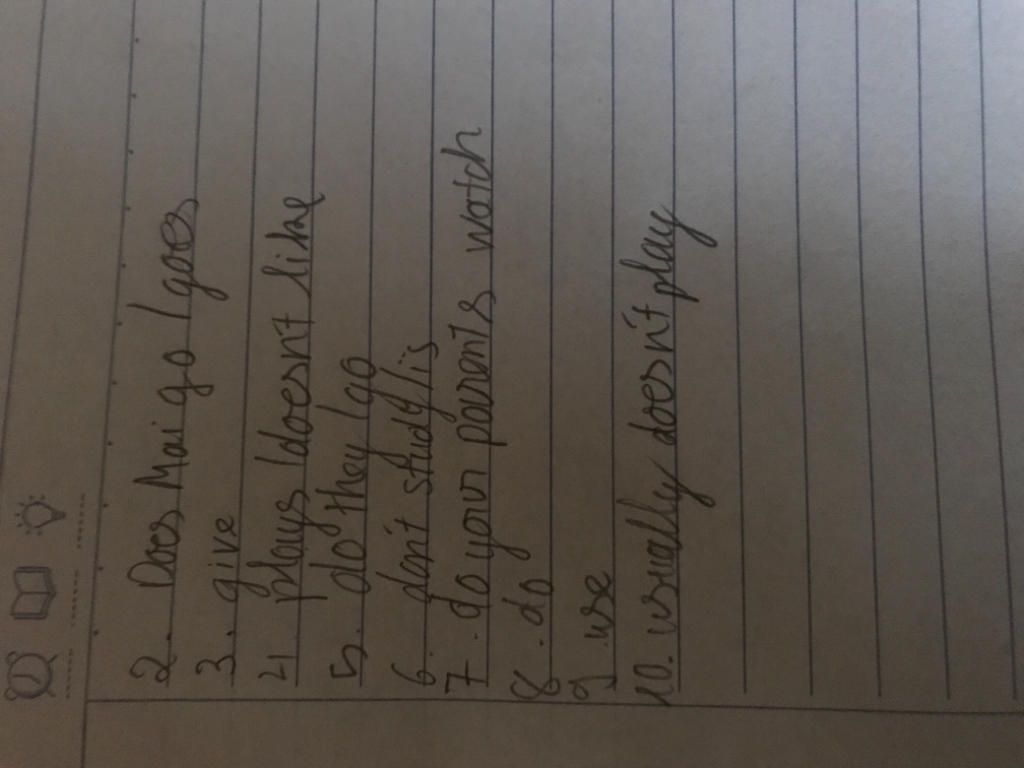 2. Does Mai go / goes
3. give
4. plays / doesn't like
5. do they / go
6. don't study / is
7. do your parents watch
8. do
9. use
10. usually doesn't play